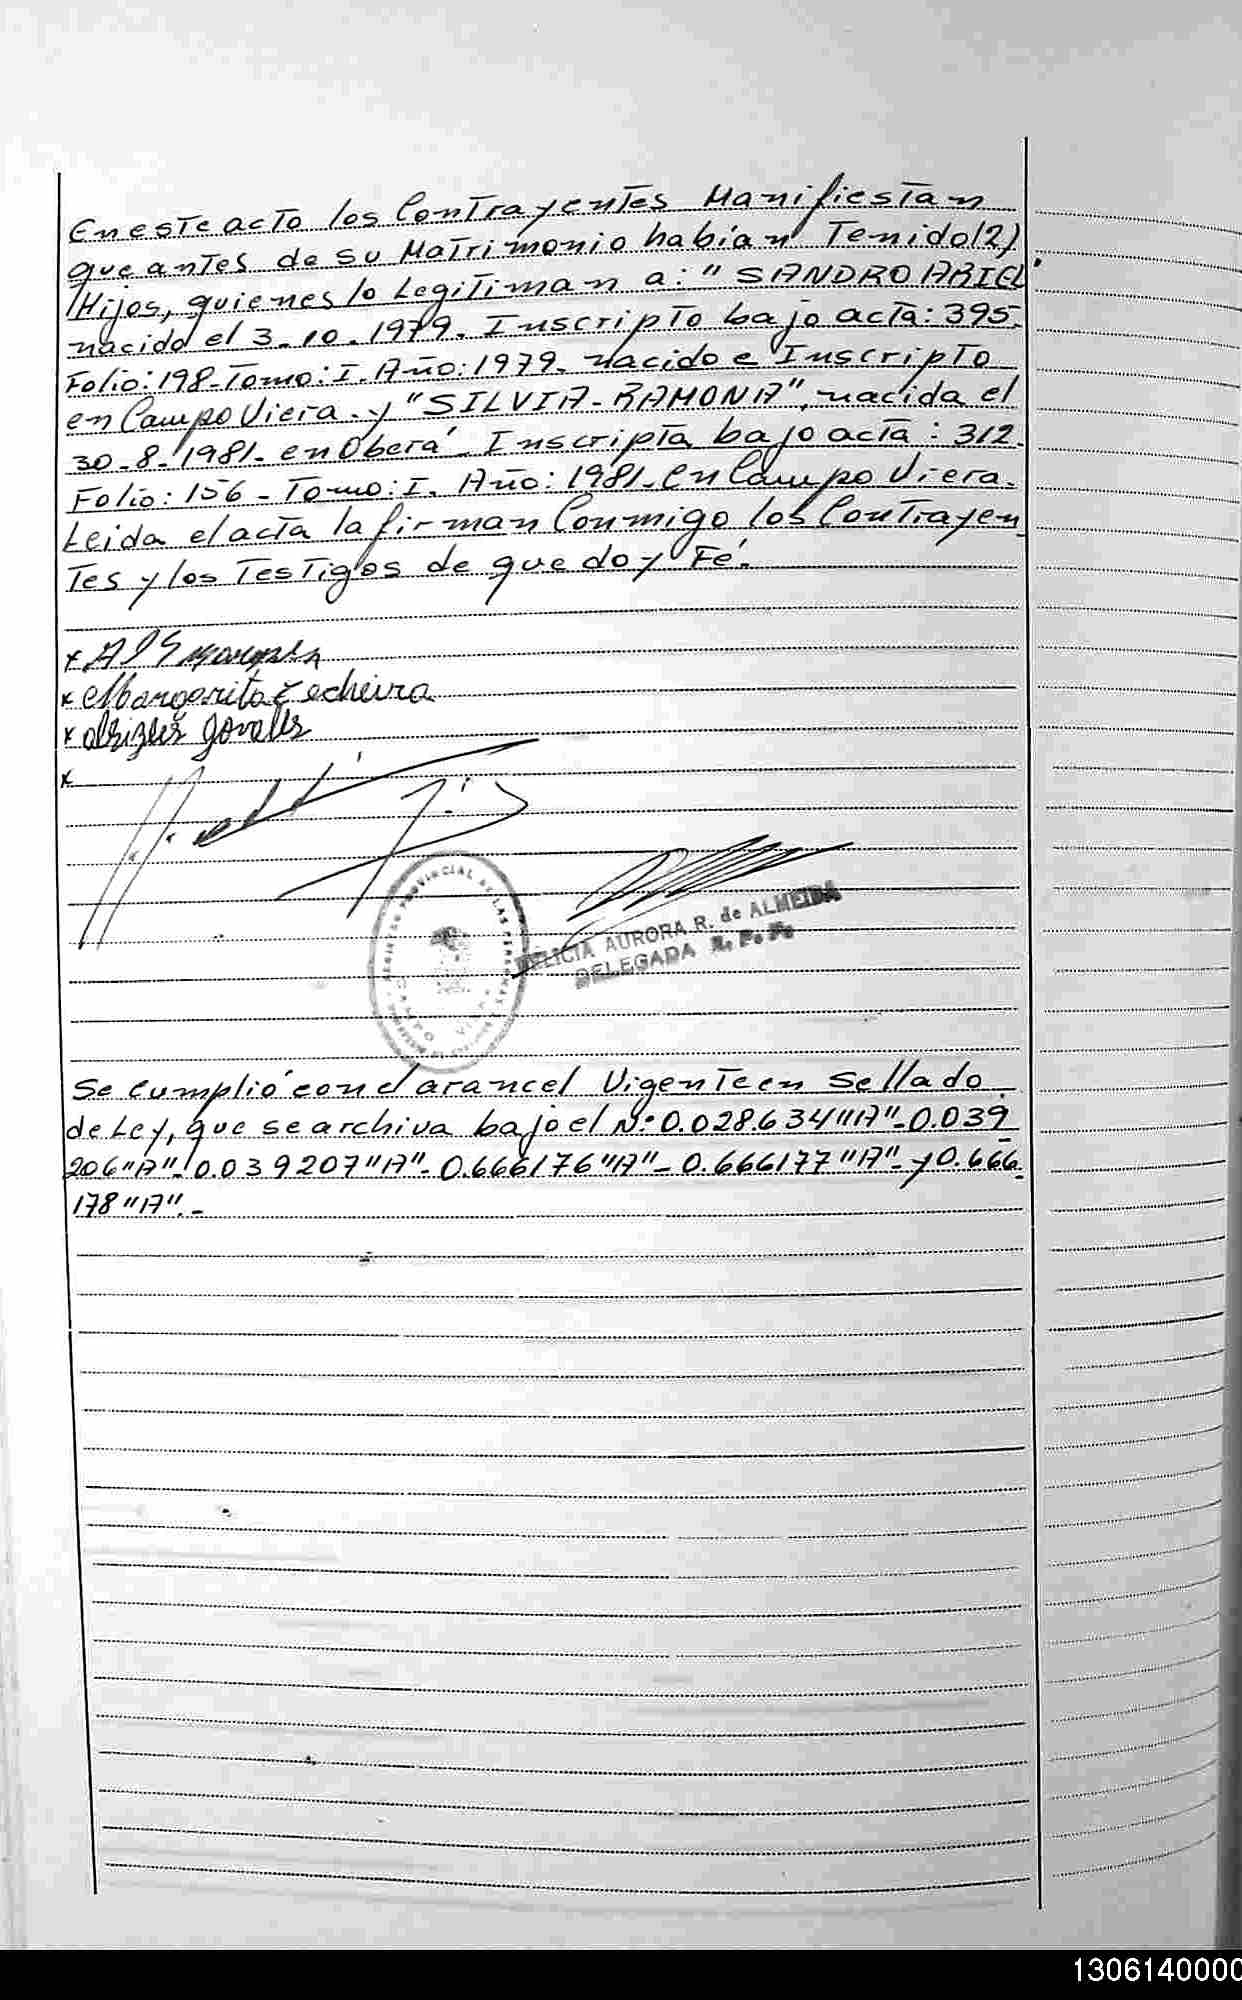 En este acto los Contrayentes Manifiestan
que antes de su Matrimonio habían Tenido (2)
Hijos, quienes lo Legitiman a: "SANDRO ARIEL
nacido el 3-10-1979. Inscripto bajo acta: 395.
Folio: 198-Tomo: I. Año: 1979. nacido e Inscripto
en Campo Viera. y "SILVIA-RAMONA", nacida el
30-8-1981- en Oberá. Inscripta bajo acta: 312.
Folio: 156- Tomo: I. Año: 1981- en Campo Viera.
Leida el acta la firman Conmigo los Contrayen
Tes y los Testigos de que doy Fe.
x
x Margarita
x
x
REGISTRO PROVINCIAL DE LAS PERSONAS
CAMPO VIERA
AURORA R. de ALMEIDA
DELEGADA R. P. P.
Se cumplió con el arancel Vigente en Sellado
de Ley, que se archiva bajo el N: 0.028.634 "A"-0.039
206 "A"- 0.039207 "A"- 0.666176 "A"- 0.666177 "A"- y 0.666
178 "A".-
1306140000